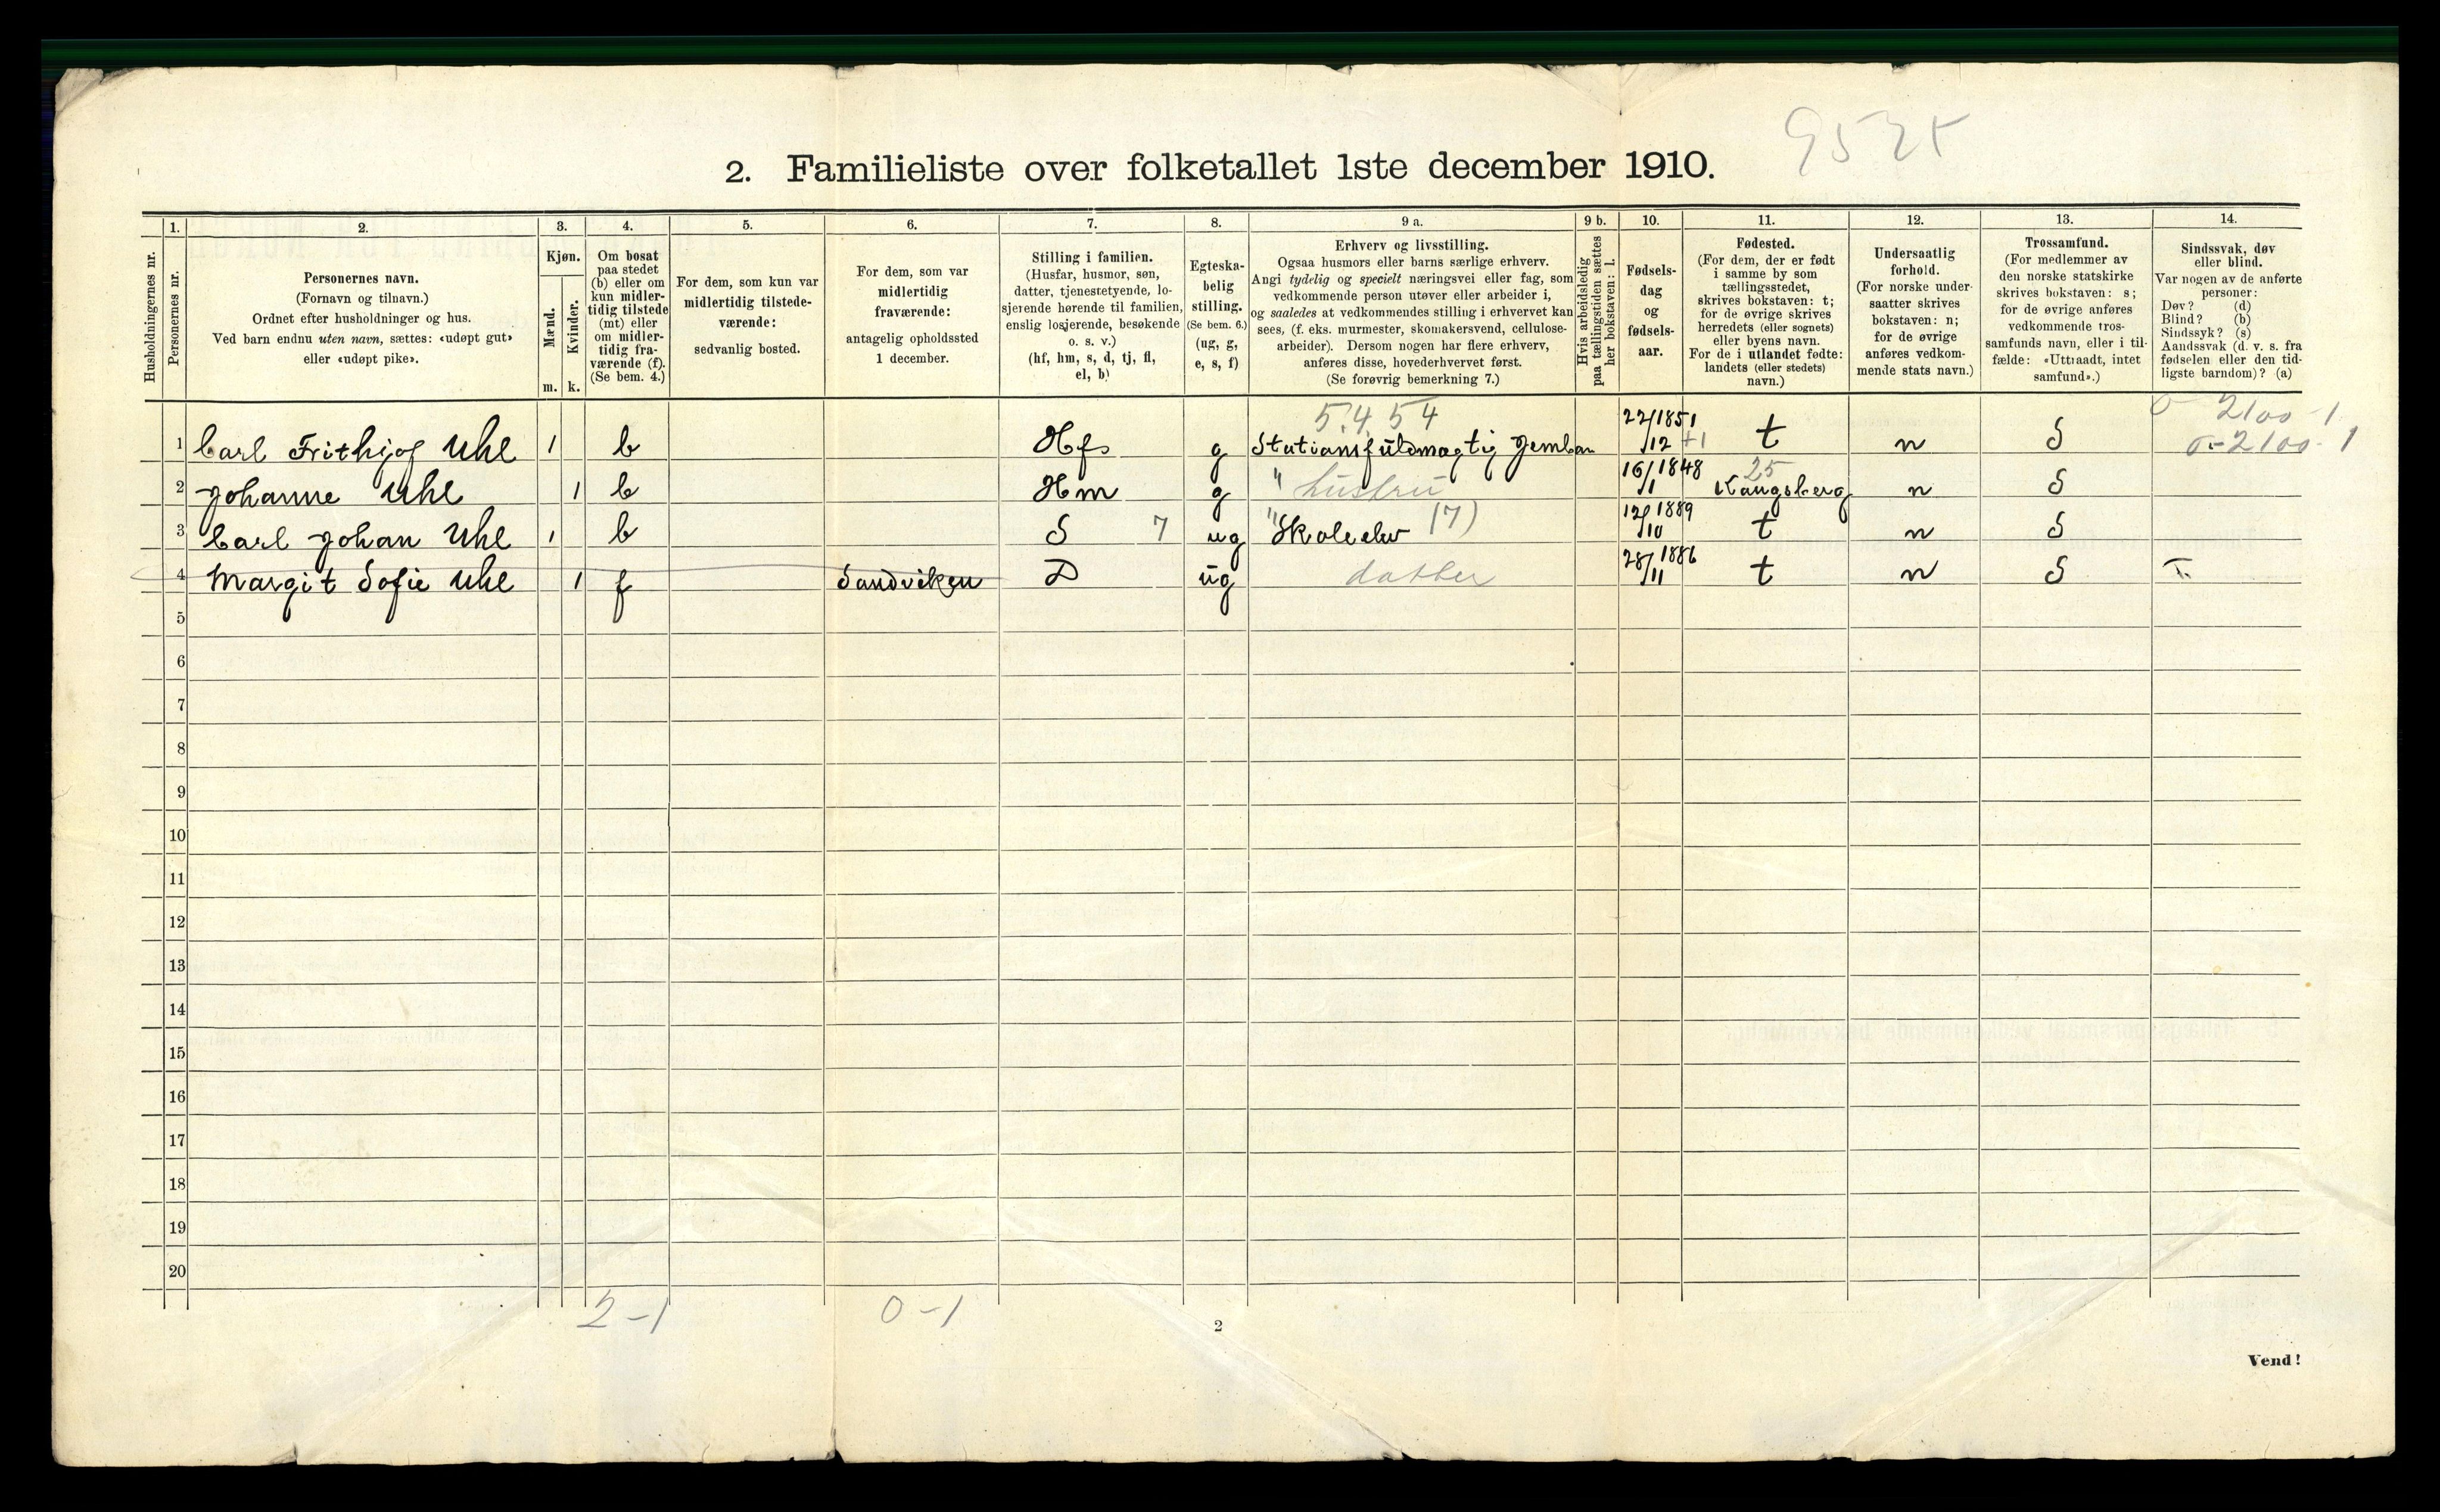 9525
2. Familieliste over folketallet 1ste december 1910.
Husholdningernes nr.
1.
Personernes nr.
2.
Personernes navn.
(Fornavn og tilnavn.)
Ordnet efter husholdninger og hus.
Ved barn endnu uten navn, sættes: «udøpt gut»
eller «udøpt pike».
3.
Kjøn.
Mænd.
m.
Kvinder.
k.
4.
Om bosat
paa stedet
(b) eller om
kun midler-
tidig tilstede
(mt) eller
om midler-
tidig fra-
værende (f).
(Se bem. 4.)
5.
For dem, som kun var
midlertidig tilstede-
værende:
sedvanlig bosted.
6.
For dem, som var
midlertidig
fraværende:
antagelig opholdssted
1 december.
7.
Stilling i familien.
(Husfar, husmor, søn,
datter, tjenestetyende, lo-
sjerende hørende til familien,
enslig losjerende, besøkende
o. s. v.)
(hf, hm, s, d, tj, fl,
el, b)
8.
Egteska-
belig
stilling.
(Se bem. 6.)
(ug, g,
e, s, f)
9 a.
Erhverv og livsstilling.
Ogsaa husmors eller barns særlige erhverv.
Angi tydelig og specielt næringsvei eller fag, som
vedkommende person utøver eller arbeider i,
og saaledes at vedkommendes stilling i erhvervet kan
sees, (f. eks. murmester, skomakersvend, cellulose-
arbeider). Dersom nogen har flere erhverv,
anføres disse, hovederhvervet først.
(Se forøvrig bemerkning 7.)
9 b.
Hvis arbeidsledig
paa tællingstiden sættes
her bokstaven: l.
10.
Fødsels-
dag
og
fødsels-
aar.
11.
Fødested.
(For dem, der er født
i samme by som
tællingsstedet,
skrives bokstaven: t;
for de øvrige skrives
herredets (eller sognets)
eller byens navn.
For de i utlandet fødte:
landets (eller stedets)
navn.)
12.
Undersaatlig
forhold.
(For norske under-
saatter skrives
bokstaven: n;
for de øvrige
anføres vedkom-
mende stats navn.)
13.
Trossamfund.
(For medlemmer av
den norske statskirke
skrives bokstaven: s;
for de øvrige anføres
vedkommende tros-
samfunds navn, eller i til-
fælde: «Uttraadt, intet
samfund».)
14.
Sindssvak, døv
eller blind.
Var nogen av de anførte
personer:
Døv? (d)
Blind? (b)
Sindssyk? (s)
Aandssvak (d. v. s. fra
fødselen eller den tid-
ligste barndom)? (a)
5.4.54 0-2100-1
1 Carl Frithjof Uhl 1 b Hf g Stationsfuldmægtig Jernban 22/12 1851 +1 t n S 0-2100-1
2 Johanne Uhl 1 b Hm g " hustru 16/1 1848 25 Kongsberg n S
3 Carl Johan Uhl 1 b S 7 ug " Skoleelev (7) 12/10 1889 t n S
4 Margit Sofie Uhl 1 f Sandviken D ug datter 28/11 1886 t n S
5
6
7
8
9
10
11
12
13
14
15
16
17
18
19
20
2-1 0-1
2
Vend!